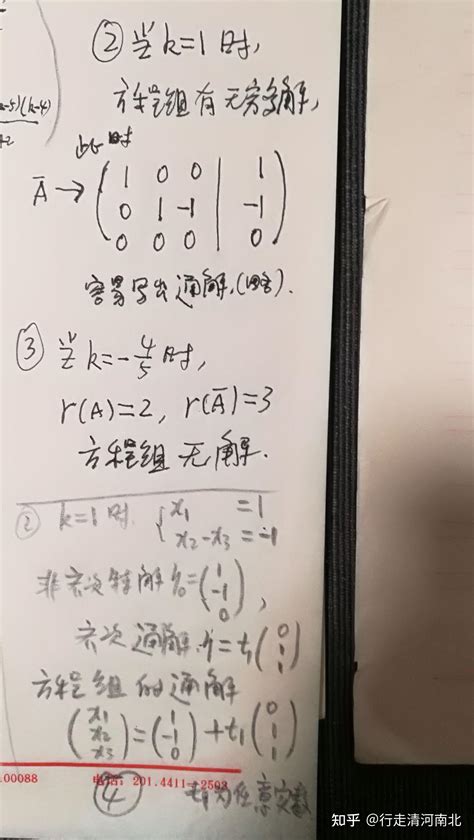 ② 当 k=1 时,
方程组有无穷多解,
k-5)(k-4)
+2
此时
Ā → ( 1 0 0 | 1
0 1 -1 | -1
0 0 0 | 0 )
容易写出通解.(略).
③ 当 k=-4/5 时,
r(A)=2, r(Ā)=3
方程组无解.
② k=1 时. { x₁ =1
x₂-x₃ =-1
非齐次特解 η₀=(1 -1 0),
齐次通解 η=t₁(0 1 1)
方程组的通解
(x₁ x₂ x₃)=(1 -1 0)+t₁(0 1 1)
.00088 电话: 201.4411-2503
④ t₁为任意实数
知乎 @行走清河南北